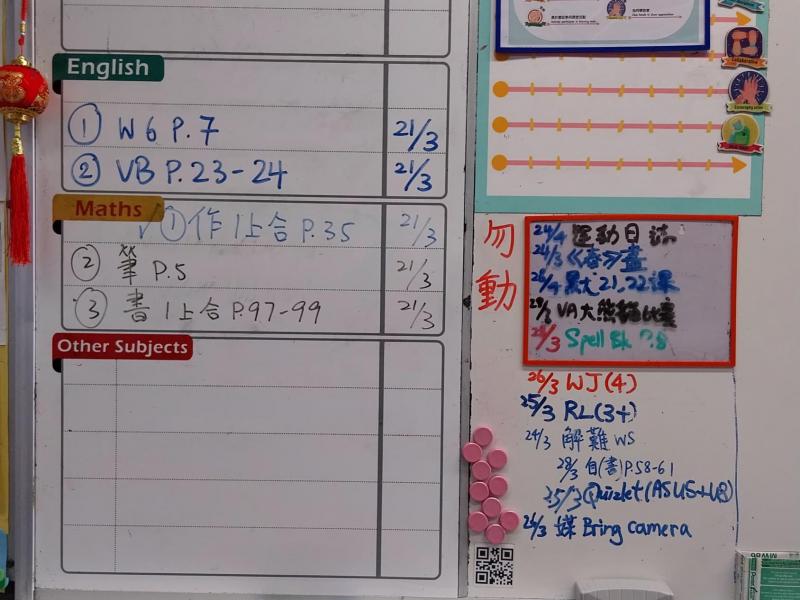 English
① W6 P.7 21/3
② VB P.23-24 21/3
Maths
① 作1上合 P.35 21/3
② 筆 P.5 21/3
③ 書1上合 P.97-99 21/3
Other Subjects
Collaborative
勿動
24/4 運動日誌
24/3 《春》畫
21,22課
VA大熊貓比賽
21/3 Spell Bk P.8
26/3 WJ(4)
25/3 RL(3+)
24/3 解難 WS
28/3 自(書)P.58-61
25/3 Quizlet (ASUS+UB)
26/3 Bring camera